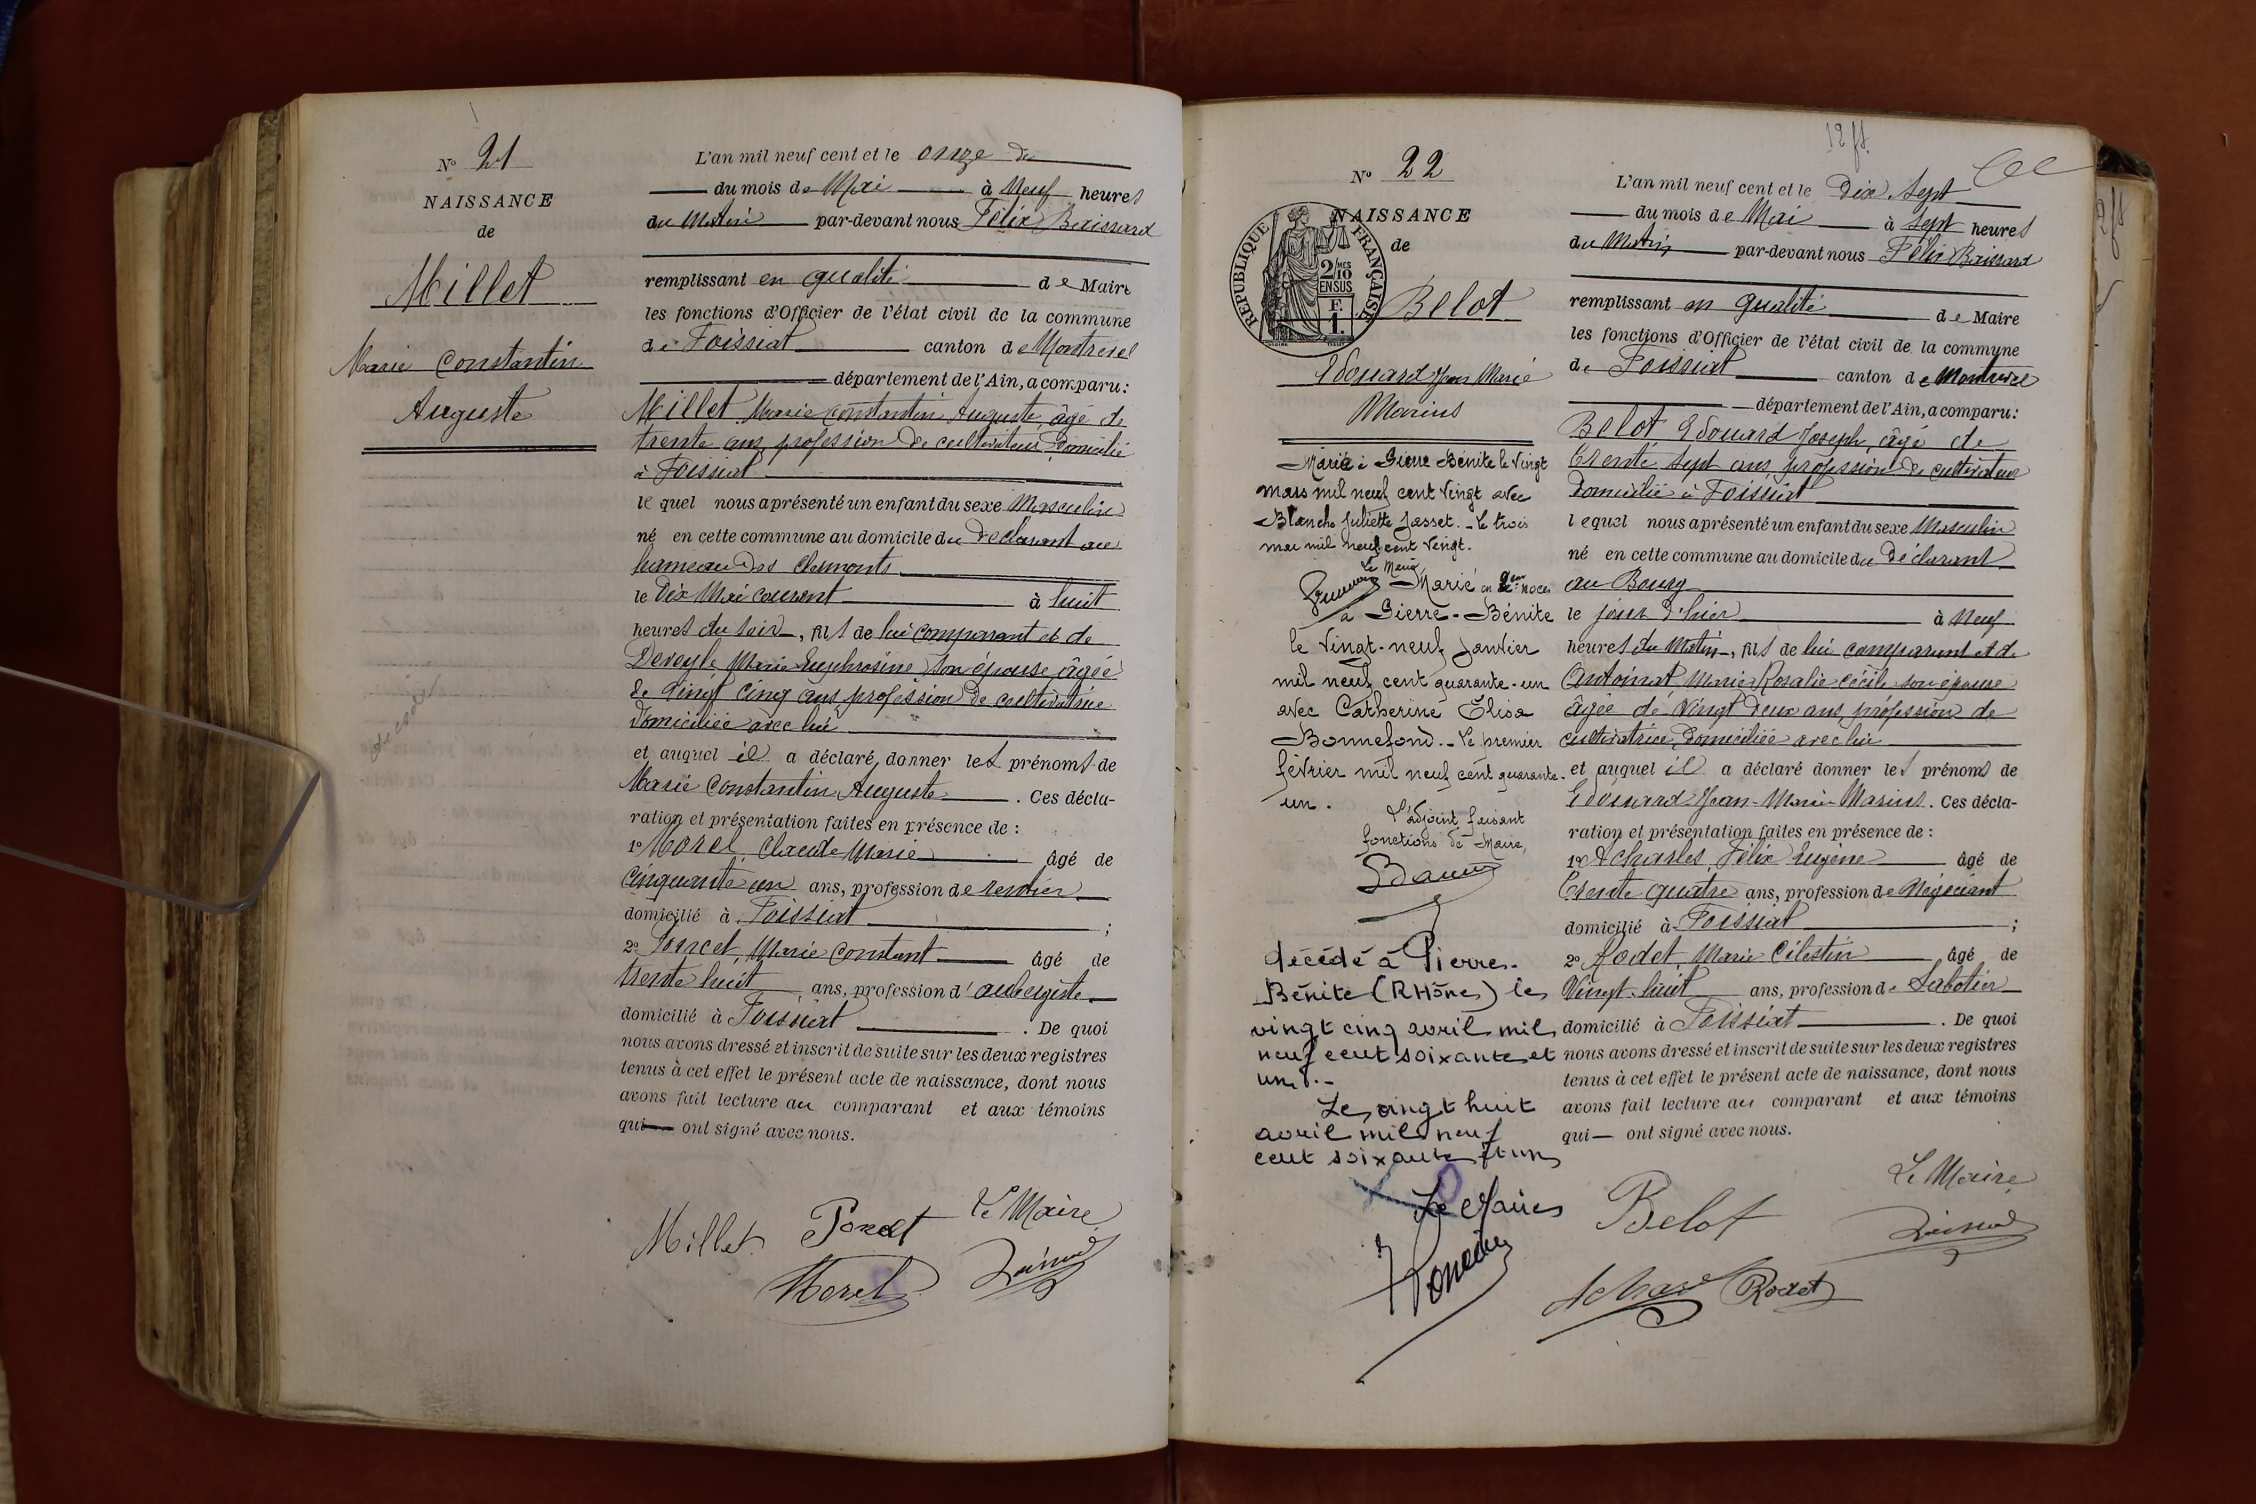 N° 21
NAISSANCE
de
Millet
Marie Constantin
Auguste
L'an mil neuf cent et le onze
du mois de Mai à Neuf heures
du Matin par-devant nous Félix
remplissant en qualité de Maire
les fonctions d'Officier de l'état civil de la commune
de Foissiat canton de Montrevel
département de l'Ain, a comparu:
Millet Marie Constantin Auguste, âgé de
trente ans, profession de cultivateur domicilié
à Foissiat
lequel nous a présenté un enfant du sexe Masculin
né en cette commune au domicile du Déclarant au
hameau des
le Dix Mai courant à huit
heures du soir, fils de lui comparant et de
Marie Euphrosine son épouse, âgée
de vingt cinq ans, profession de cultivatrice
domiciliée avec lui
et auquel il a déclaré donner les prénoms de
Marie Constantin Auguste. Ces décla-
ration et présentation faites en présence de :
1° Morel, Claude Marie âgé de
cinquante un ans, profession de rentier
domicilié à Foissiat ;
2° Poncet, Marie Constant âgé de
trente huit ans, profession d'aubergiste
domicilié à Foissiat . De quoi
nous avons dressé et inscrit de suite sur les deux registres
tenus à cet effet le présent acte de naissance, dont nous
avons fait lecture au comparant et aux témoins
qui ont signé avec nous.
Millet Poncet Le Maire
Morel
12 ff
N° 22
NAISSANCE
de
RÉPUBLIQUE FRANÇAISE
2/10 MES
EN SUS
F.
1.
Belot
Edouard Jean Marie
Marius
Marié à Pierre Bénite le vingt
mars mil neuf cent vingt avec
Blanche Juliette Jasset. - Le trois
mai mil neuf cent vingt.
Le Maire
Marié en 2me noces
à Pierre-Bénite
le vingt-neuf janvier
mil neuf cent quarante-un
avec Catherine Élisa
Bonnefond. - Le premier
février mil neuf cent quarante-
un.
L'adjoint faisant
fonctions de Maire,
décédé à Pierre-
Bénite (Rhône) le
vingt cinq avril mil
neuf cent soixante et
un. -
Le vingt huit
avril mil neuf
cent soixante et un
Le Maire
L'an mil neuf cent et le Dix Sept
du mois de Mai à Sept heures
du Matin par-devant nous Félix
remplissant en qualité de Maire
les fonctions d'Officier de l'état civil de la commune
de Foissiat canton de Montrevel
département de l'Ain, a comparu:
Belot Edouard Joseph, âgé de
trente sept ans, profession de cultivateur
domicilié à Foissiat
lequel nous a présenté un enfant du sexe Masculin
né en cette commune au domicile du Déclarant
au Bourg
le jour d'hier à Neuf
heures du Matin, fils de lui comparant et de
Antoinat Marie Rosalie Cécile son épouse
âgée de vingt deux ans, profession de
cultivatrice, domiciliée avec lui
et auquel il a déclaré donner les prénoms de
Edouard Jean-Marie Marius. Ces décla-
ration et présentation faites en présence de :
1° Félix Eugène âgé de
trente quatre ans, profession de Négociant
domicilié à Foissiat ;
2° Rodet, Marie Célestin âgé de
vingt-huit ans, profession de Sabotier
domicilié à Foissiat . De quoi
nous avons dressé et inscrit de suite sur les deux registres
tenus à cet effet le présent acte de naissance, dont nous
avons fait lecture au comparant et aux témoins
qui ont signé avec nous.
Le Maire
Belot
Rodet